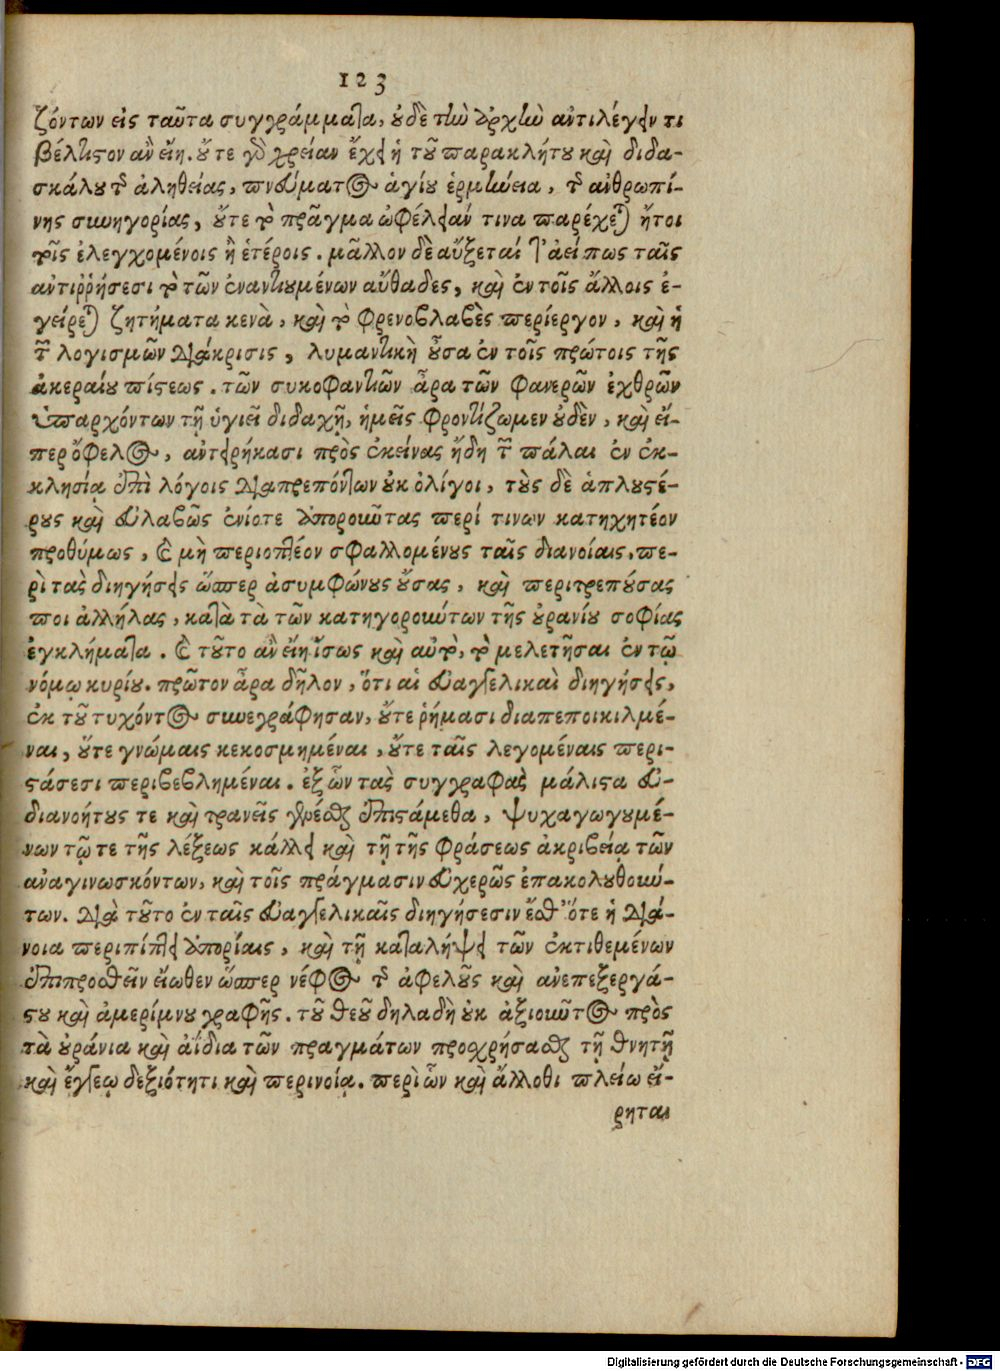 123
ζόντων εἰς ταῦτα συγγράμματα, οὐδὲ τὴν ἀρχὴν ἀντιλέγειν τι
βέλτιστον ἂν εἴη. οὔτε γὸ χρείαν ἔχει ἡ τοῦ παρακλήτου καὶ διδα-
σκάλου τῆς ἀληθείας, πνεύματος ἁγίου ἑρμηνεία, τῆς ἀνθρωπί-
νης συνηγορίας, οὔτε τὸ πρᾶγμα ὠφέλειάν τινα παρέχεται ἤτοι
τοῖς ἐλεγχομένοις ἢ ἑτέροις. μᾶλλον δὲ αὔξεταί τ' ἀεί πως ταῖς
ἀντιῤῥήσεσι τὸ τῶν ἐναντιουμένων αὔθαδες, καὶ ἐν τοῖς ἄλλοις ἐ-
γείρεται ζητήματα κενὰ, καὶ τὸ φρενοβλαβὲς περίεργον, καὶ ἡ
τῶν λογισμῶν διάκρισις, λυμαντικὴ οὖσα ἐν τοῖς πρώτοις τῆς
ἀκεραίου πίστεως. τῶν συκοφαντικῶν ἆρα τῶν φανερῶν ἐχθρῶν
ὑπαρχόντων τῇ ὑγιεῖ διδαχῇ, ἡμεῖς φροντίζωμεν οὐδὲν, καὶ εἴ-
περ ὄφελος, ἀντειρήκασι πρὸς ἐκείνας ἤδη τῶν πάλαι ἐν ἐκ-
κλησίᾳ ἐπὶ λόγοις διαπρεπόντων οὐκ ὀλίγοι, τοὺς δὲ ἁπλουστέ-
ρους καὶ εὐλαβῶς ἐνίοτε ἀποροῦντας περί τινων κατηχητέον
προθύμως, καὶ μὴ περιοπτέον σφαλλομένους ταῖς διανοίαις, πε-
ρὶ τὰς διηγήσεις ὥσπερ ἀσυμφώνους οὔσας, καὶ περιτρεπούσας
ποι ἀλλήλας, κατὰ τὰ τῶν κατηγορούντων τῆς οὐρανίου σοφίας
ἐγκλήματα. καὶ τοῦτο ἂν εἴη ἴσως καὶ αὐτὸ, τὸ μελετῆσαι ἐν τῷ
νόμῳ κυρίου. πρῶτον ἆρα δῆλον, ὅτι αἱ εὐαγγελικαὶ διηγήσεις,
ἐκ τοῦ τυχόντος συνεγράφησαν, οὔτε ῥήμασι διαπεποικιλμέ-
ναι, οὔτε γνώμαις κεκοσμημέναι, οὔτε ταῖς λεγομέναις περι-
στάσεσι περιβεβλημέναι. ἐξ ὧν τὰς συγγραφὰς μάλιστα εὐ-
διανοήτους τε καὶ τρανεῖς γενέσθαι ἐπιστάμεθα, ψυχαγωγουμέ-
νων τῷ τε τῆς λέξεως κάλλει καὶ τῇ τῆς φράσεως ἀκριβείᾳ τῶν
ἀναγινωσκόντων, καὶ τοῖς πράγμασιν εὐχερῶς ἐπακολουθούν-
των. διὰ τοῦτο ἐν ταῖς εὐαγγελικαῖς διηγήσεσιν ἔσθ' ὅτε ἡ διά-
νοια περιπίπτει ἀπορίαις, καὶ τῇ καταλήψει τῶν ἐκτιθεμένων
ἐπιπροσθεῖν εἴωθεν ὥσπερ νέφος τῆς ἀφελοῦς καὶ ἀνεπεξεργά-
στου καὶ ἀμερίμνου γραφῆς. τοῦ θεοῦ δηλαδὴ οὐκ ἀξιοῦντος πρὸς
τὰ οὐράνια καὶ ἀΐδια τῶν πραγμάτων προσχρήσασθαι τῇ θνητῇ
καὶ ἐγγείῳ δεξιότητι καὶ περινοίᾳ. περὶ ὧν καὶ ἄλλοθι πλείω εἴ-
ρηται
Digitalisierung gefördert durch die Deutsche Forschungsgemeinschaft - DFG